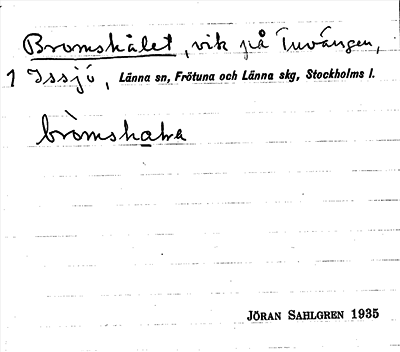 Bromskålet, vik på Tuvängen,
1 Issjö, Länna sn, Frötuna och Länna skg, Stockholms l.
JÖRAN SAHLGREN 1935